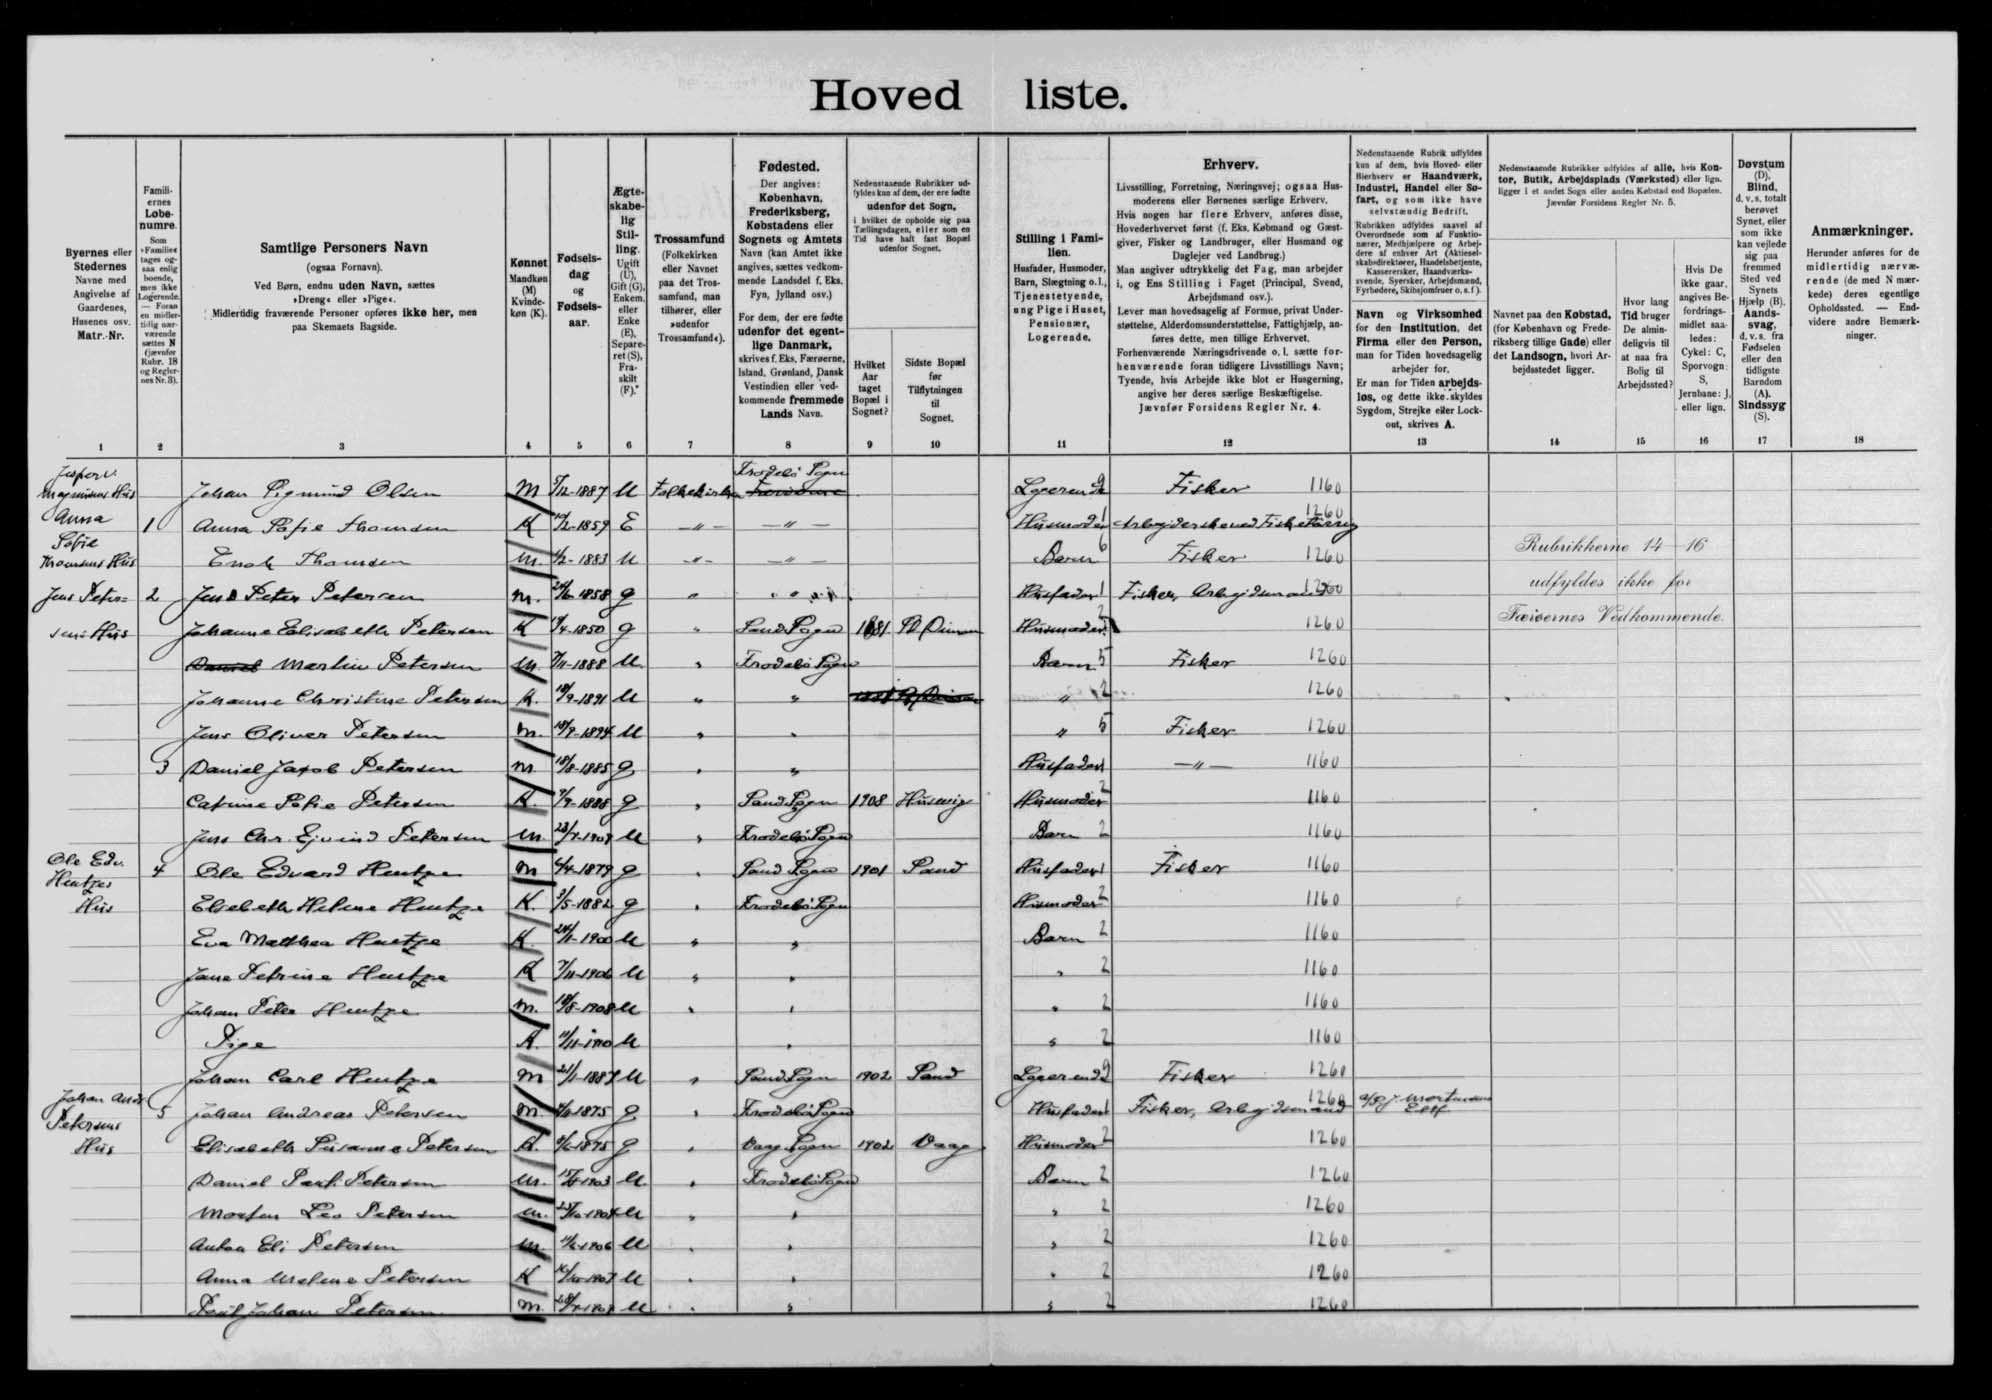 Hoved liste.
Byernes eller Stedernes Navne med Angivelse af Gaardenes, Husenes osv. Matr.-Nr.
Familiernes Løbenumre. Som »Familie« tages ogsaa enlig boende, men ikke Logerende. — Foran en midlertidig nærværende sættes N (jævnfør Rubr. 18 og Regler-nes Nr. 3).
Samtlige Personers Navn (ogsaa Fornavn). Ved Børn, endnu uden Navn, sættes »Dreng« eller »Pige«. Midlertidig fraværende Personer opføres ikke her, men paa Skemaets Bagside.
Kønnet Mandkøn (M) Kvindekøn (K).
Fødselsdag og Fødselsaar.
Ægteskabelig Stilling. Ugift (U), Gift (G), Enkem. eller Enke (E), Separeret (S), Fraskilt (F).
Trossamfund (Folkekirken eller Navnet paa det Trossamfund, man tilhører, eller »udenfor Trossamfund«).
Fødested. Der angives: København, Frederiksberg, Købstadens eller Sognets og Amtets Navn (kan Amtet ikke angives, sættes vedkommende Landsdel f. Eks. Fyn, Jylland osv.) For dem, der ere fødte udenfor det egentlige Danmark, skrives f. Eks. Færøerne, Island, Grønland, Dansk Vestindien eller vedkommende fremmede Lands Navn.
Nedenstaaende Rubrikker udfyldes kun af dem, der ere fødte udenfor det Sogn, i hvilket de opholde sig paa Tællingsdagen, eller som en Tid have haft fast Bopæl udenfor Sognet.
Hvilket Aar taget Bopæl i Sognet?
Sidste Bopæl før Tilflytningen til Sognet.
Stilling i Familien. Husfader, Husmoder, Barn, Slægtning o.l., Tjenestetyende, ung Pige i Huset, Pensionær, Logerende.
Erhverv. Livsstilling, Forretning, Næringsvej; ogsaa Husmoderens eller Børnenes særlige Erhverv. Hvis nogen har flere Erhverv, anføres disse, Hovederhvervet først (f. Eks. Købmand og Gæstgiver, Fisker og Landbruger, eller Husmand og Daglejer ved Landbrug.) Man angiver udtrykkelig det Fag, man arbejder i, og Ens Stilling i Faget (Principal, Svend, Arbejdsmand osv.). Lever man hovedsagelig af Formue, privat Understøttelse, Alderdomsunderstøttelse, Fattighjælp, anføres dette, men tillige Erhvervet. Forhenværende Næringsdrivende o. l. sætte forhenværende foran tidligere Livsstillings Navn; Tyende, hvis Arbejde ikke blot er Husgerning, angive her deres særlige Beskæftigelse. Jævnfør Forsidens Regler Nr. 4.
Nedenstaaende Rubrik udfyldes kun af dem, hvis Hoved- eller Bierhverv er Haandværk, Industri, Handel eller Søfart, og som ikke have selvstændig Bedrift.
Rubrikken udfyldes saavel af Overordnede som af Funktionærer, Medhjælpere og Arbejdere af enhver Art (Aktieselskabsdirektører, Handelsbetjente, Kasserersker, Haandværkssvende, Syersker, Arbejdsmænd, Fyrbødere, Skibsjomfruer o. s. f.).
Navn og Virksomhed for den Institution, det Firma eller den Person, man for Tiden hovedsagelig arbejder for. Er man for Tiden arbejdsløs, og dette ikke skyldes Sygdom, Strejke eller Lockout, skrives A.
Nedenstaaende Rubrikker udfyldes af alle, hvis Kontor, Butik, Arbejdsplads (Værksted) eller lign. ligger i et andet Sogn eller anden Købstad end Bopælen. Jævnfør Forsidens Regler Nr. 5.
Navnet paa den Købstad, (for København og Frederiksberg tillige Gade) eller det Landsogn, hvori Arbejdsstedet ligger.
Hvor lang Tid bruger De almindeligvis til at naa fra Bolig til Arbejdssted?
Hvis De ikke gaar, angives Befordringsmidlet saaledes: Cykel: C, Sporvogn: S, Jernbane: J, eller lign.
Døvstum (D). Blind, d. v. s. totalt berøvet Synet, eller som ikke kan vejlede sig paa fremmed Sted ved Synets Hjælp (B). Aandssvag, d. v. s. fra Fødselen eller den tidligste Barndom (A). Sindssyg (S).
Anmærkninger. Herunder anføres for de midlertidig nærværende (de med N mærkede) deres egentlige Opholdssted. — Endvidere andre Bemærkninger.
1 2 3 4 5 6 7 8 9 10 11 12 13 14 15 16 17 18
Magnusens Hus Johan Sigmund Olsen M 1887 U Folkekirken Frodebö Sogn Logerende 9 Fisker 1160
Anna Sofie Thomsens Hus 1 Anna Sofie Thomsen K 1859 E —〃— —〃— Husmoder 1 1260
Enok Thomsen M. 1883 U —〃— —〃— Barn 6 Fisker 1260
Rubrikkerne 14—16
udfyldes ikke for
Færøernes Vedkommende.
Jens Peter= 2 Jens Peter Petersen M. 1858 G 〃 〃 Husfader 1 Fisker, Arbejdsmand 1260
sens Hus Johanne Elisabeth Petersen K 1850 G 〃 Sand Sogn 1881 Husmoder 2 1260
Martin Petersen M. 1888 U. 〃 Frodebö Sogn Barn 5 Fisker 1260
Johanne Christine Petersen K. 18/9-1891 U 〃 〃 〃 2 1260
Jens Oliver Petersen M. 1894 U 〃 〃 〃 5 Fisker 1260
3 Daniel Jakob Petersen M. 18/8-1885 G 〃 〃 Husfader 1 —〃— 1160
Catrine Sofie Petersen K. 1888 G 〃 Sand Sogn 1908 Husevig Husmoder 2 1160
Jens Chr. Ejvind Petersen M. 1909 U 〃 Frodebö Sogn Barn 2 1160
Ole Edv. Hentzes Hus 4 Ole Edvard Hentze M 1879 G 〃 Sand Sogn 1901 Sand Husfader 1 Fisker 1160
Elisabeth Helene Hentze K. 3/5-1882 G 〃 Frodebö Sogn Husmoder 2 1160
Eva Matthea Hentze K. 1900 U 〃 〃 Barn 2 1160
Jane Petrine Hentze K 7/11-1906 U 〃 〃 〃 2 1160
Johan Peter Hentze M. 1908 U 〃 〃 〃 2 1160
Pige K. 11/11-1910 U 〃 〃 2 1160
Johan Carl Hentze M 21/1-1887 U 〃 Sand Sogn 1902 Sand Logerende 9 Fisker 1260
Johan Andr. Petersens Hus 5 Johan Andreas Petersen M. 1875 G 〃 Frodebö Sogn Husfader 1 Fisker, Arbejdsmand 1260 Mortensens Eftf
Elisabeth Susanne Petersen K. 1875 G 〃 Vaag Sogn 1902 Vaag Husmoder 2 1260
Daniel Petersen M. 1903 U. 〃 Frodebö Sogn Barn 2 1260
Morten Leo Petersen M. 1904 U 〃 〃 〃 2 1260
Anton Eli Petersen M. 1906 U 〃 〃 〃 2 1260
Anna Malene Petersen K 1907 U 〃 〃 〃 2 1260
Poul Johan Petersen M. U 〃 〃 〃 2 1260